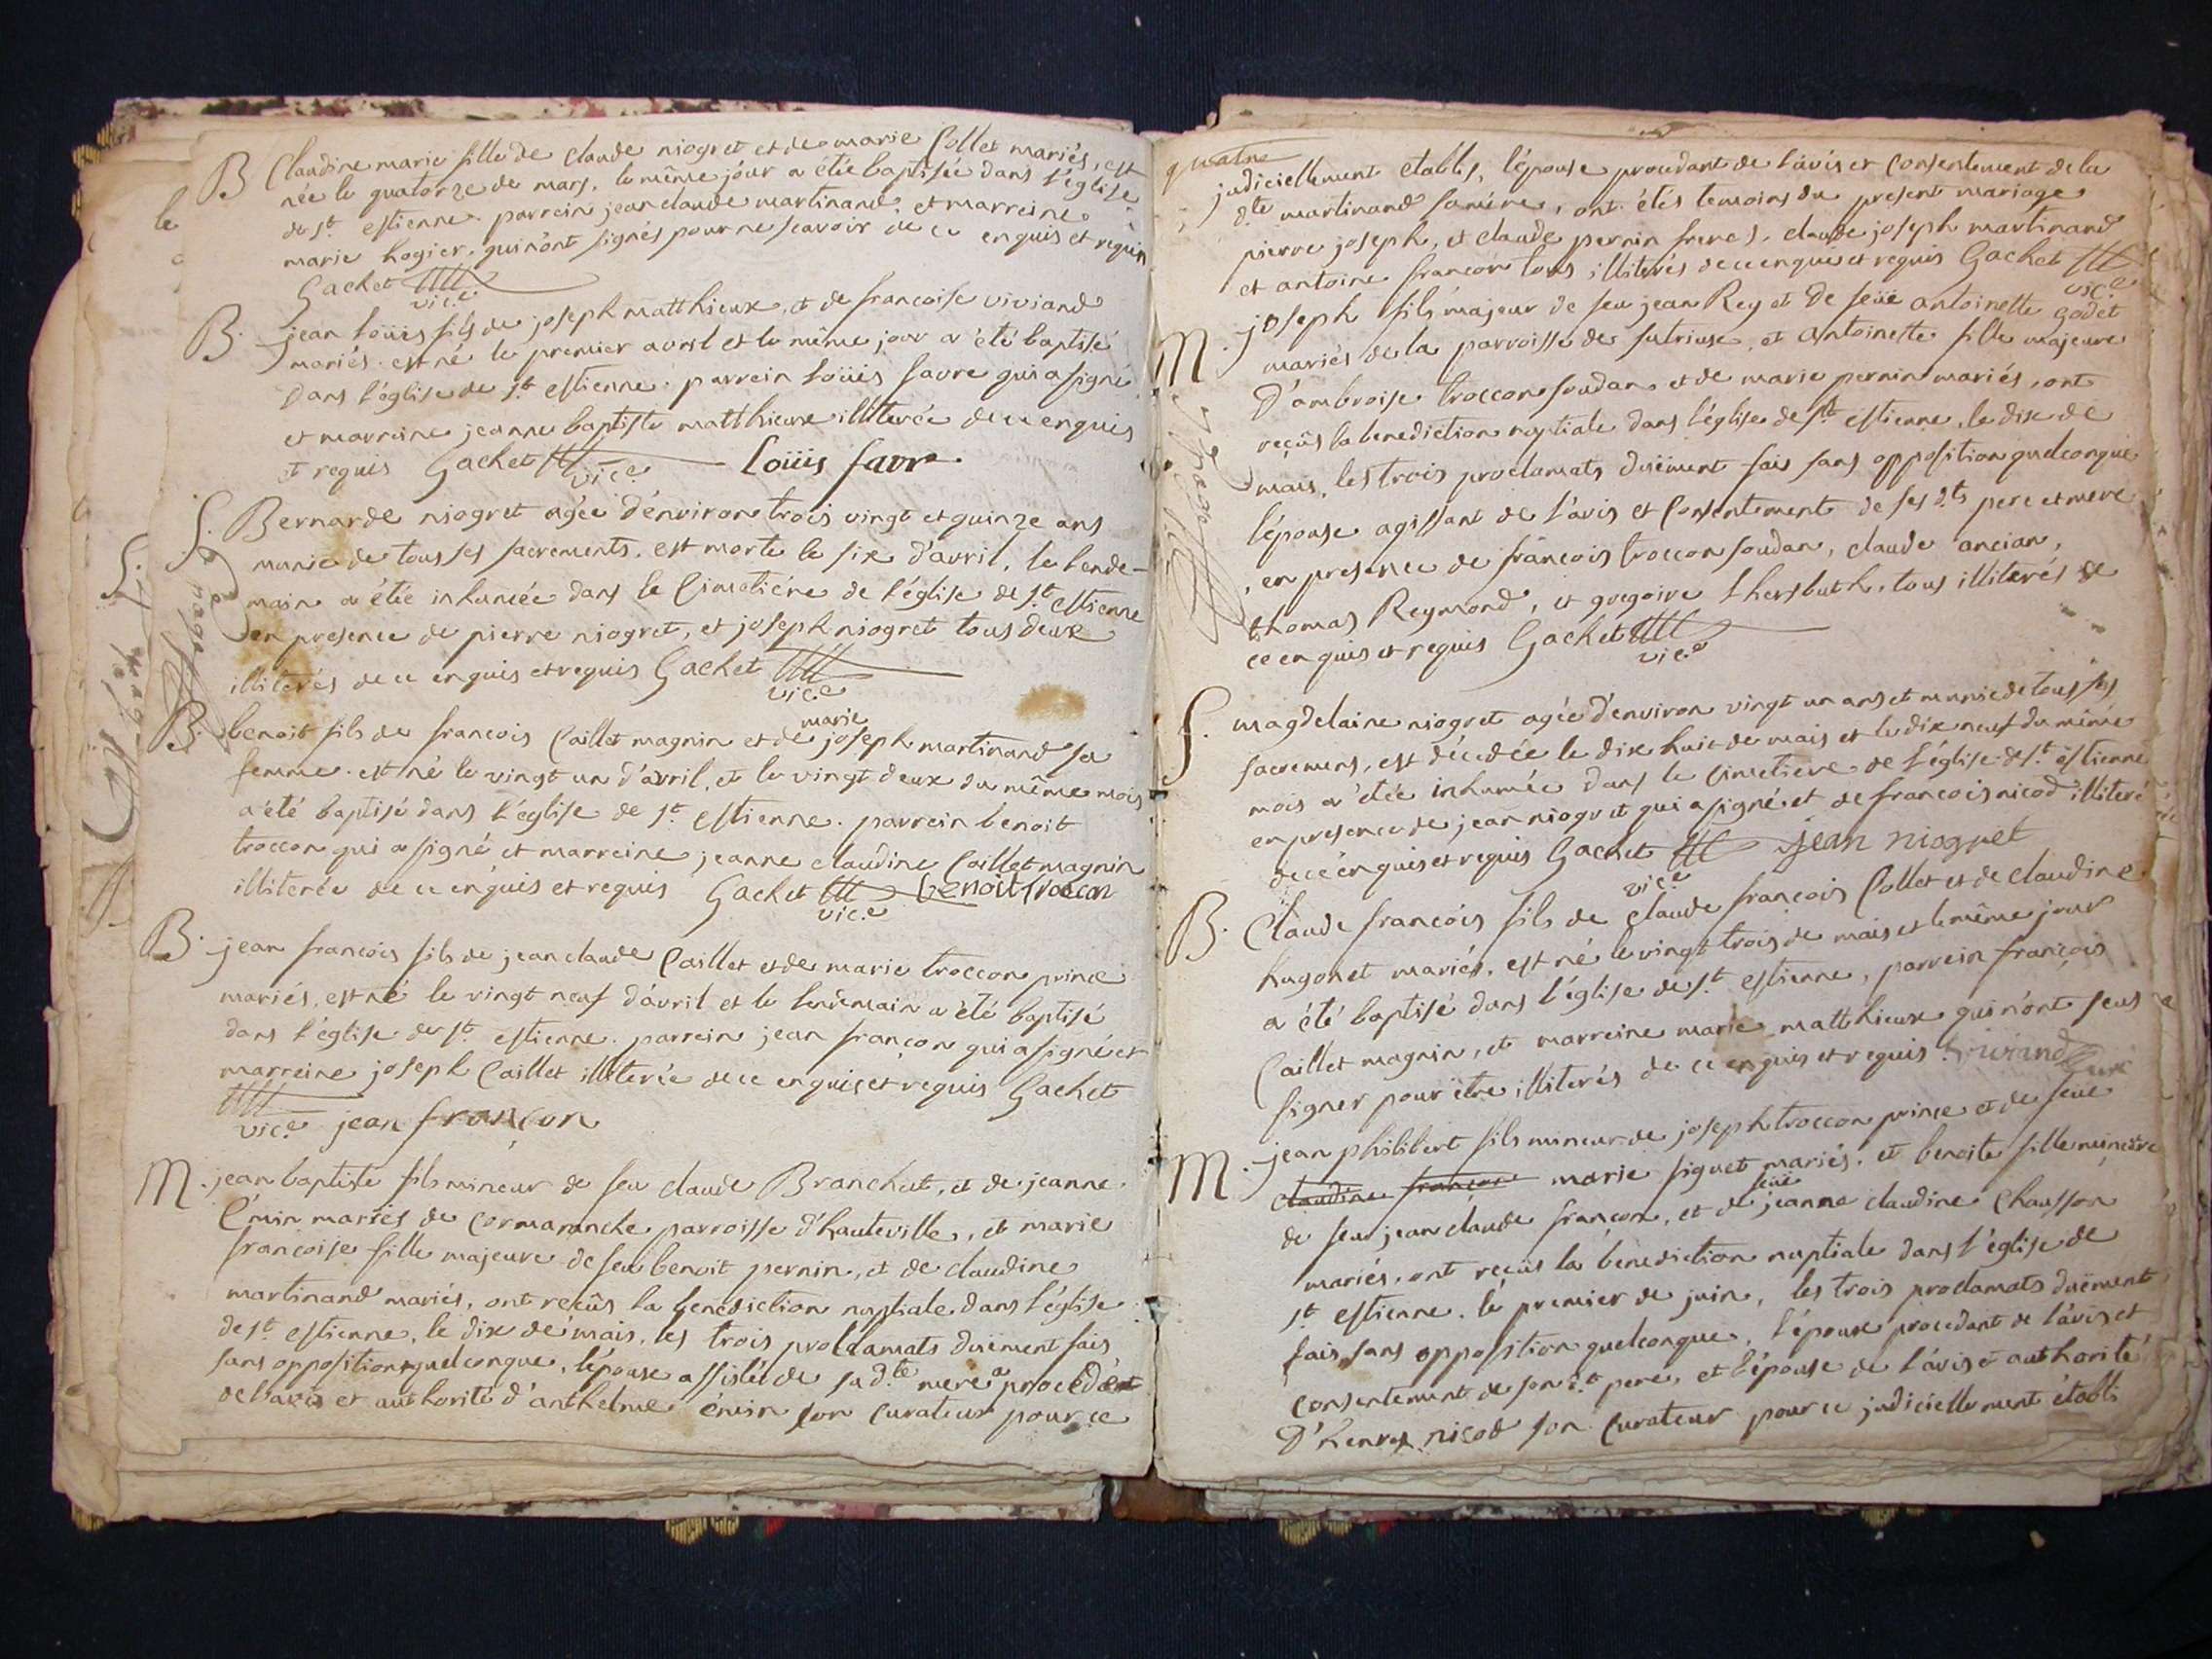 B Claudine marie fille de claude niogret et de marie Collet mariés, est
née le quatorze de mars, le même jour a étée baptisée dans l'église
de st. estienne. parrein jean claude martinand, et marreine
marie hogier, qui n'ont signés pour ne scavoir de ce enquis et requis
Gachet vic.e
B. jean loüis fils de joseph matthieux, et de francoise viviand
mariés. est né le premier avril et le même jour a été baptisé
dans l'église de st. estienne. parrein loüis favre qui a signé
et marreine jeanne baptiste matthieux illiterée de ce enquis
et requis Gachet vic.e Loüis favre
S. Bernarde niogret agée d'environ trois vingt et quinze ans
munie de tous ses sacrements. est morte le six d'avril, le lende-
main a étée inhumée dans le Cimetiére de l'église de st. estienne
en presence de pierre niogret, et joseph niogret tous deux
illiterés de ce enquis et requis Gachet vic.e
B. benoit fils de francois Caillet magnin et de marie joseph martinand sa
femme. est né le vingt un d'avril, et le vingt deux du même mois
a été baptisé dans l'église de st. estienne. parrein benoit
troccon qui a signé et marreine jeanne claudine Caillet magnin
illiterée de ce enquis et requis Gachet vic.e benoit troccon
B. jean francois fils de jean claude Caillet et de marie troccon prince
mariés, est né le vingt neuf d'avril et le lendemain a été baptisé
dans l'église de st. estienne. parrein jean françon qui a signé et
marreine joseph Caillet illiterée de ce enquis et requis Gachet
vic.e jean françon
M. jean baptiste fils mineur de feu claude Branchut, et de jeanne
Émin mariés de Cormaranche parroisse d'hauteville, et marie
françoise fille majeure de feu benoit pernin, et de claudine
martinand mariés, ont reçûs la benediction nuptiale dans l'église
de st. estienne, le dix de mais, les trois proclamats duëment fais
sans opposition quelconque, l'épouse assistée de sa d.te mere a procédé
de l'avis et authorité d'anthelme émin son Curateur pour ce
quatre
judiciellement etablis, l'épouse procedant de l'avis et Consentement de la
d.te martinand sa mére, ont étés temoins du present mariage
pierre joseph, et claude pernin freres, claude joseph martinand
et antoine francon tous illiterés de ce enquis et requis Gachet vic.e
M. joseph fils majeur de feu jean Rey et de feüe antoinette godet
mariés de la parroisse de sutrieux, et antoinette fille majeure
d'ambroise troccon soudan et de marie pernin mariés, ont
reçûs la benediction nuptiale dans l'église de st. estienne, le dix de
mais, les trois proclamats duëment fais sans opposition quelconque
l'épouse agissant de l'avis et Consentement de ses d.ts pere et mere
, en presence de françois troccon soudan, claude ancian,
thomas Reymond, et gregoire thersbuth, tous illiterés de
ce enquis et requis Gachet vic.e
S. magdelaine niogret agée d'environ vingt un ans et munie de tous ses
sacremens, est décedée le dix huit de mais et le dix neuf du même
mois a étée inhumée dans le Cimetiere de l'église de st. estienne
en presence de jean niogret qui a signé et de francois nicod illiteré
de ce enquis et requis Gachet vic.e jean niogret
B. Claude françois fils de claude francois Collet et de claudine
hugonet mariés, est né le vingt trois de mais et le même jour
a été baptisé dans l'église de st. estienne, parrein françois
Caillet magnin, et marreine marie matthieux qui n'ont seus
signer pour être illiterés de ce enquis et requis. viviand
M. jean philibert fils mineur de joseph troccon prince et de feüe
claudine francon marie siguet mariés, et benoite fille mineure
de feu jean claude francon, et de feüe jeanne claudine Chausson
mariés, ont reçûs la benediction nuptiale dans l'église de
st. estienne. le premier de juin, les trois proclamats duëment
fais sans opposition quelconque, l'époux procedant de l'avis et
Consentement de son d.t pere, et l'épouse de l'avis et authorité
d'henry nicod son Curateur pour ce judiciellement établi